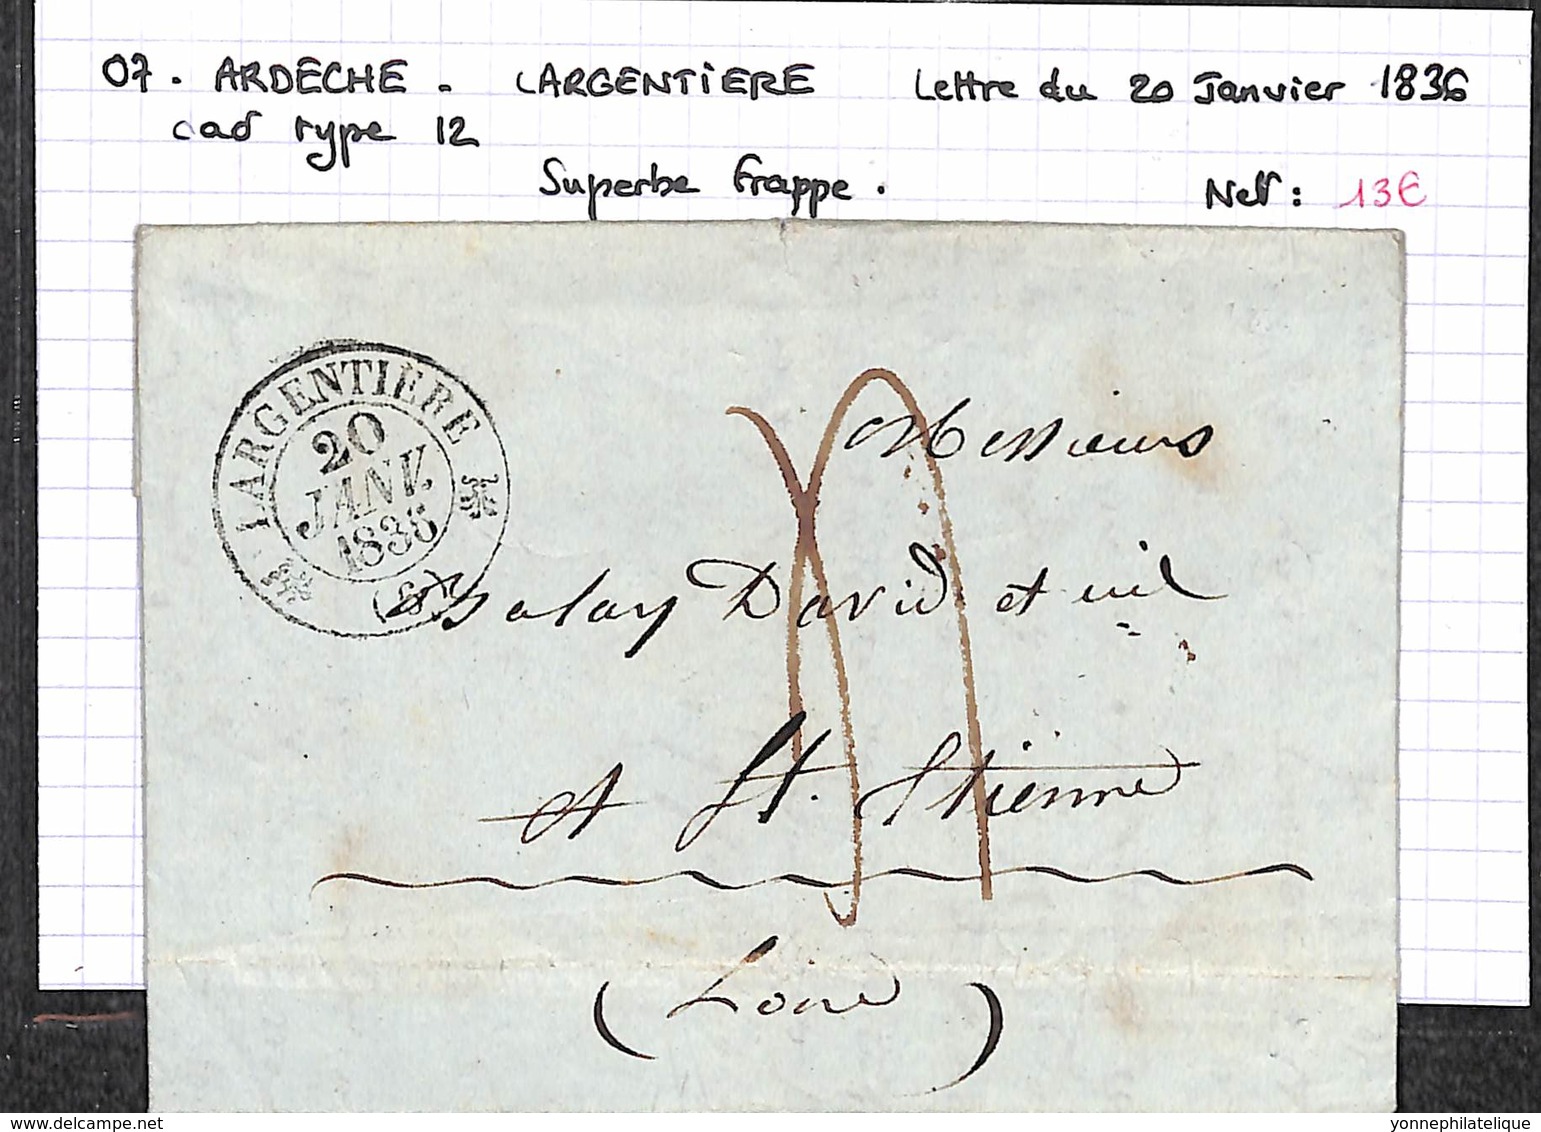 07. ARDECHE - LARGENTIERE Lettre du 20 Janvier 1836
cad type 12
Superbe frappe.
Net: 13€
LARGENTIERE
20
JANV.
1836
(6)
Messieurs
Balay David et
A St. Etienne
(Loire)
www.delcampe.net
yonnephilatelique